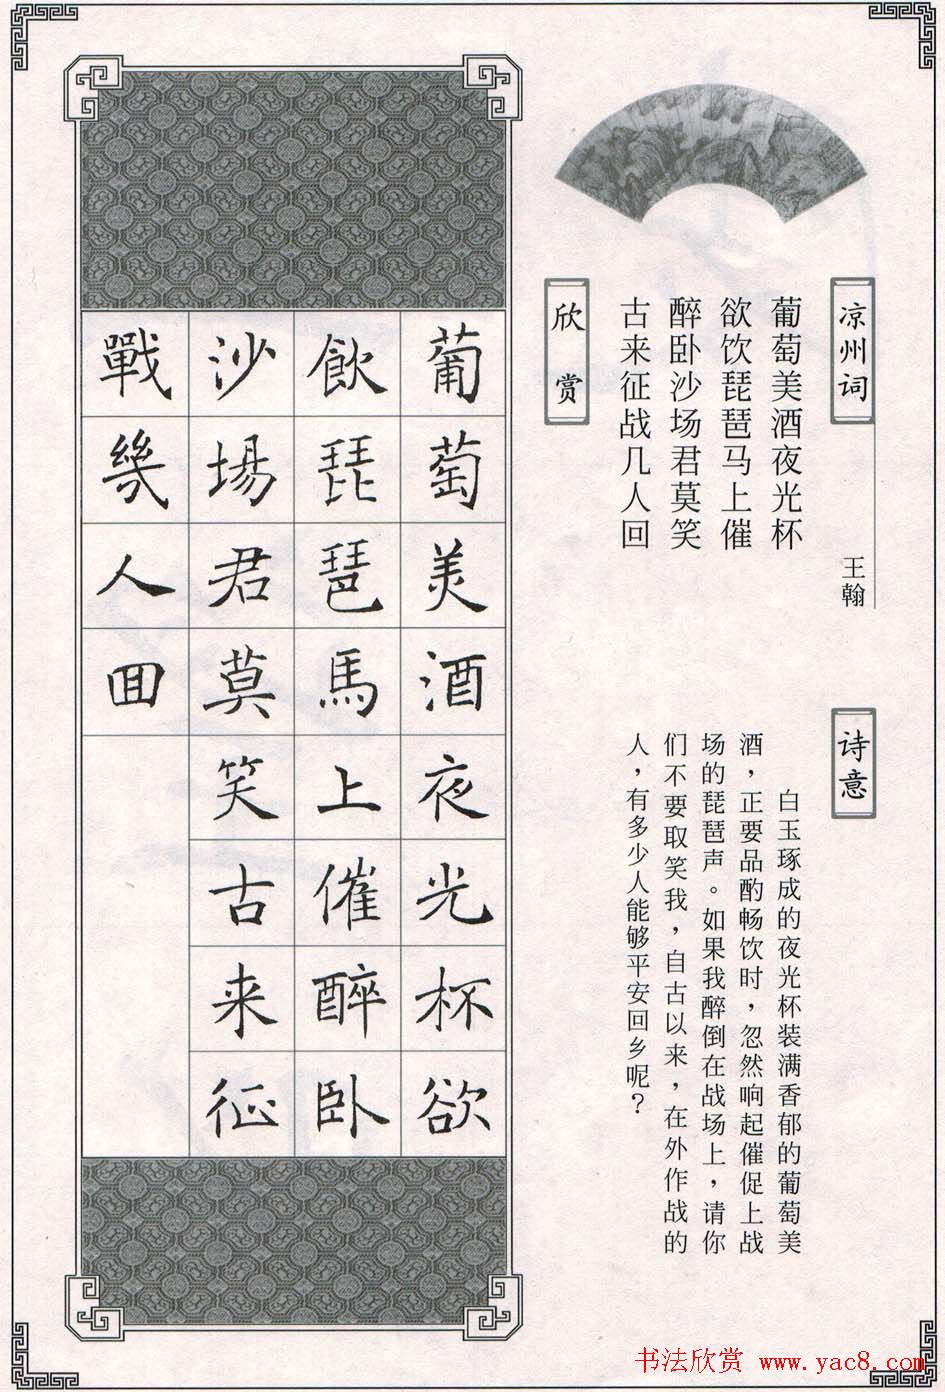 凉州词
王翰
葡萄美酒夜光杯
欲饮琵琶马上催
醉卧沙场君莫笑
古来征战几人回
欣赏
诗意
白玉琢成的夜光杯装满香郁的葡萄美
酒，正要品酌畅饮时，忽然响起催促上战
场的琵琶声。如果我醉倒在战场上，请你
们不要取笑我，自古以来，在外作战的
人，有多少人能够平安回乡呢？
葡萄美酒夜光杯欲
飲琵琶馬上催醉卧
沙場君莫笑古来征
戰幾人回
书法欣赏 www.yac8.com